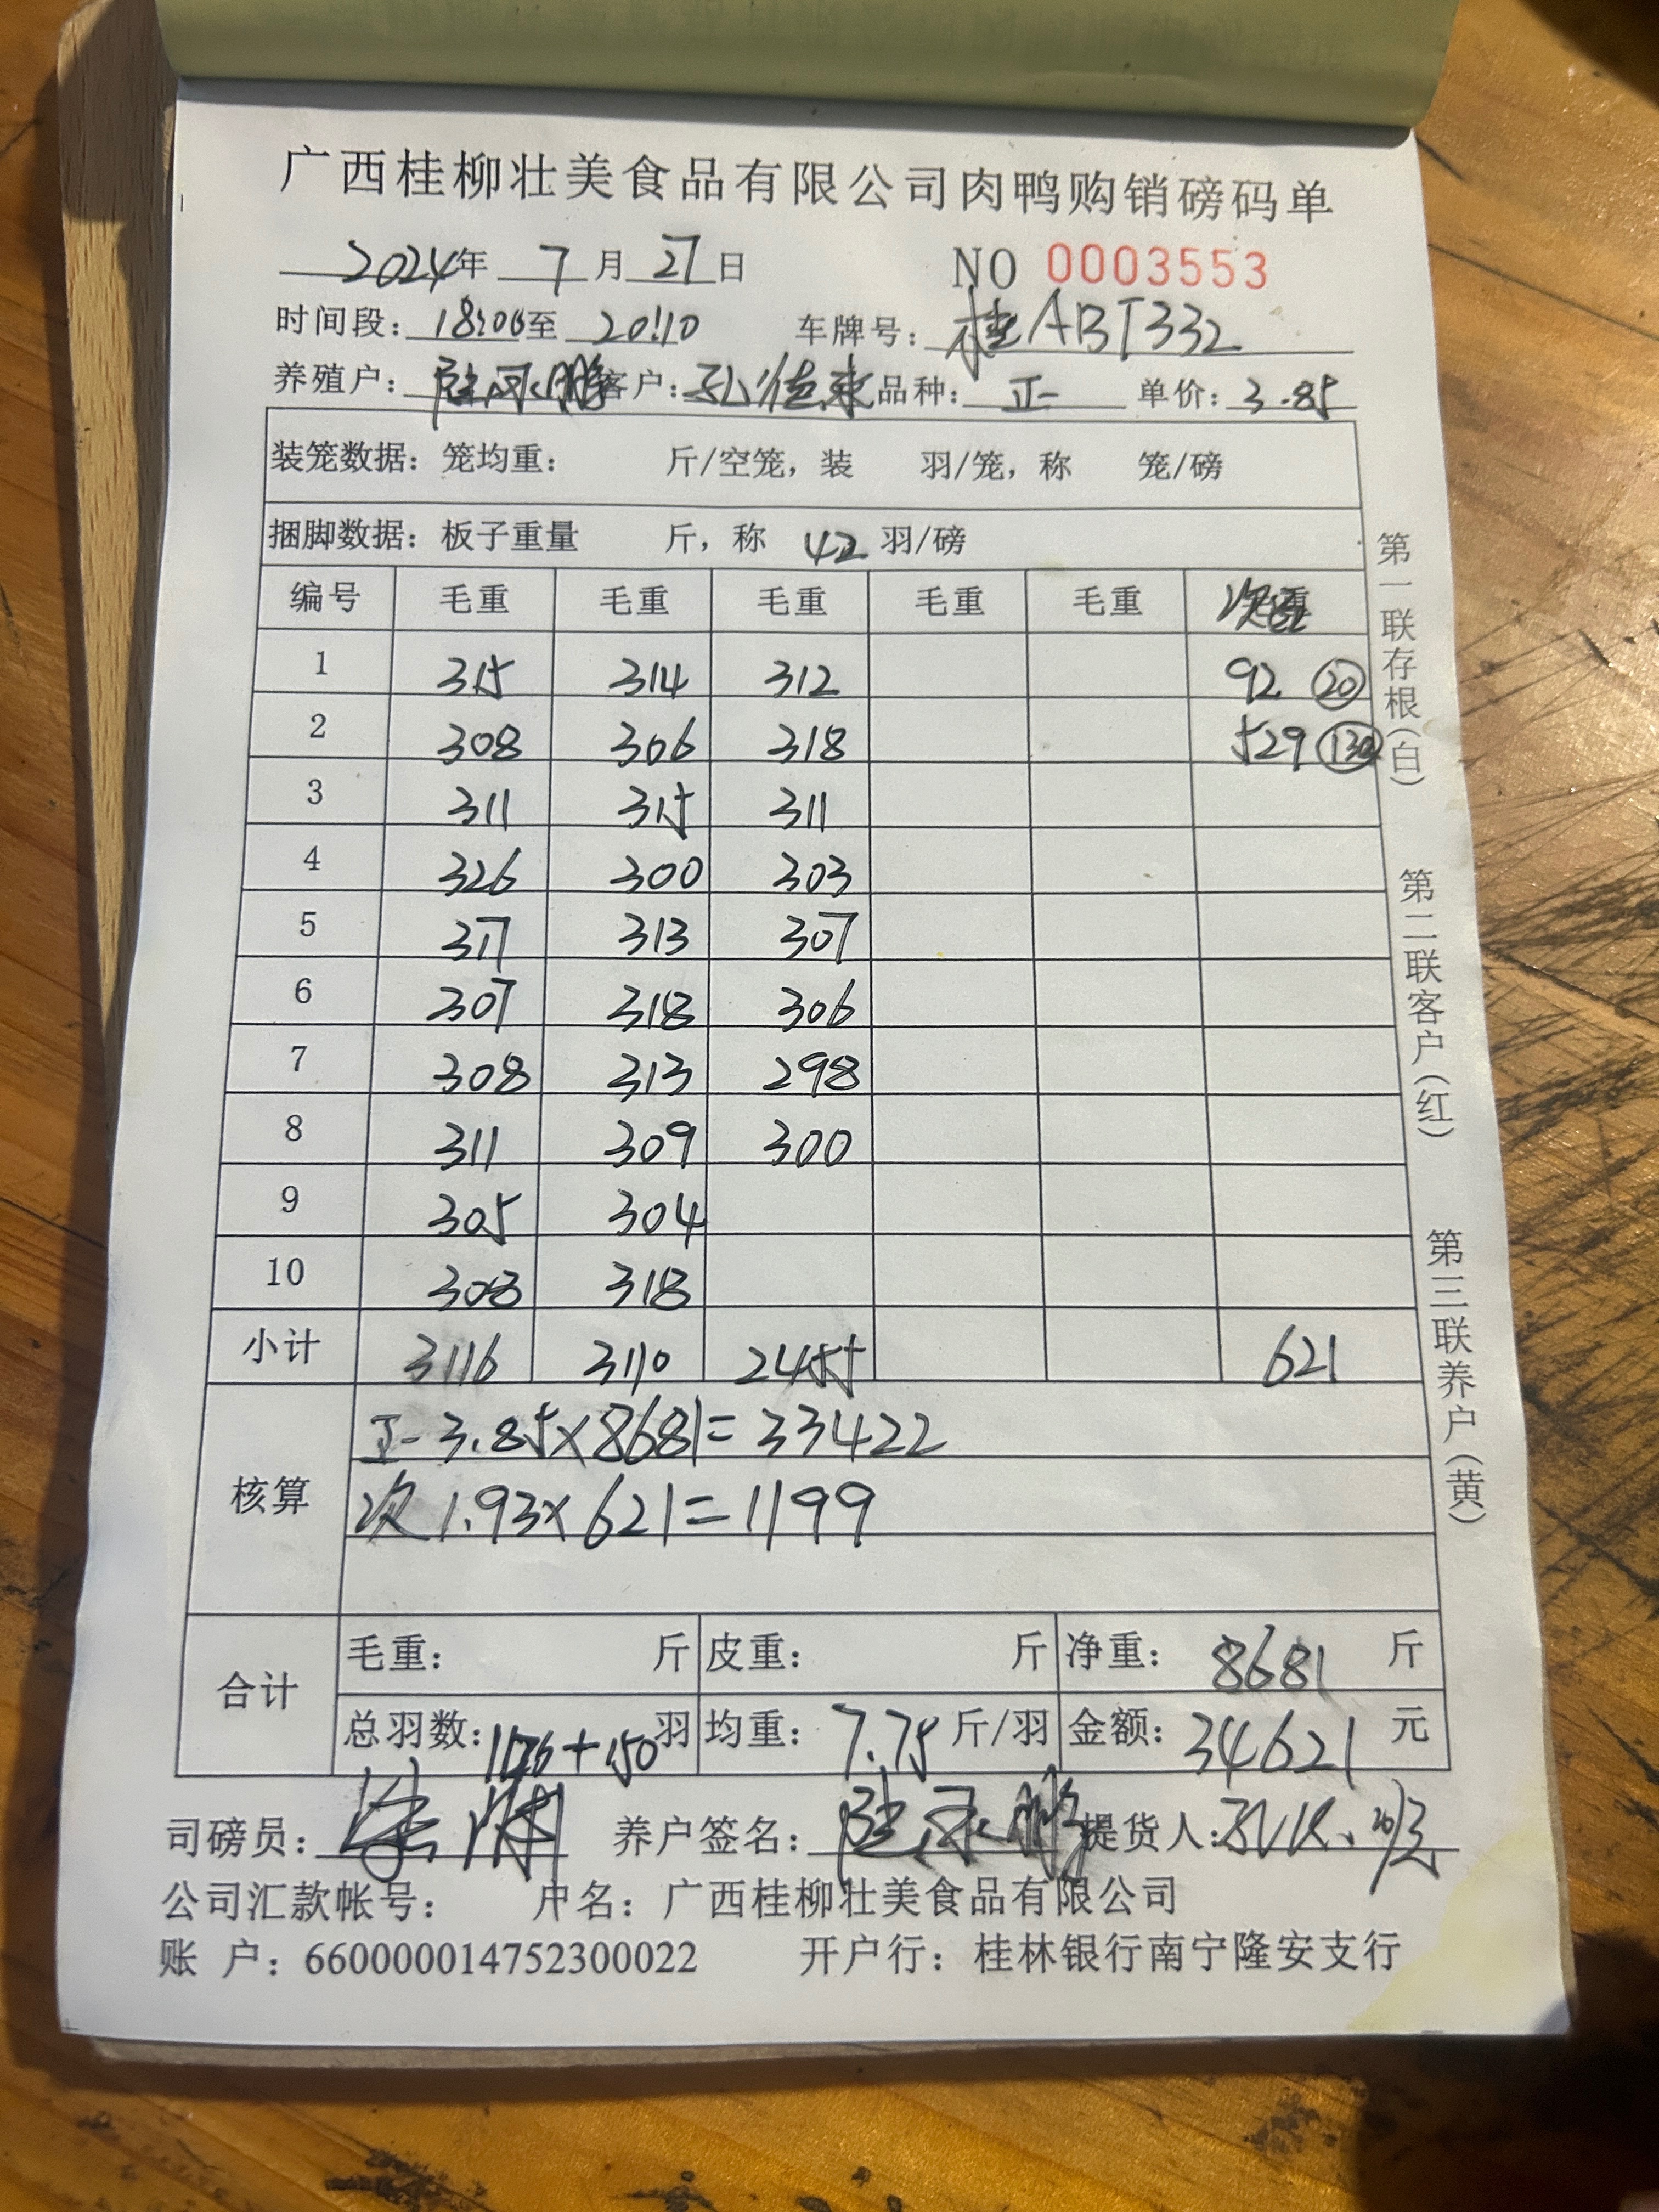 广西桂柳壮美食品有限公司肉鸭购销磅码单
2024年 7月 27日 NO 0003553
时间段：18:06至 20:10 车牌号：桂ABT332
养殖户：陆永鹏 客户： 品种：正 单价：3.85
装笼数据：笼均重： 斤/空笼，装 羽/笼，称 笼/磅
捆脚数据：板子重量 斤，称 42 羽/磅
编号 毛重 毛重 毛重 毛重 毛重 次
1 315 314 312 92 20
2 308 306 318 529 130
3 311 315 311
4 326 300 303
5 317 313 307
6 307 318 306
7 308 313 298
8 311 309 300
9 305 304
10 308 318
小计 3116 3110 2455 621
核算 正 3.85×8681=33422
次 1.93×621=1199
合计 毛重： 斤 皮重： 斤 净重： 8681 斤
总羽数：1176+150羽 均重：7.75斤/羽 金额：34621 元
司磅员： 养户签名：陆永鹏 提货人：
公司汇款帐号： 户名：广西桂柳壮美食品有限公司
账 户：660000014752300022 开户行：桂林银行南宁隆安支行
第一联存根（白） 第二联客户（红） 第三联养户（黄）